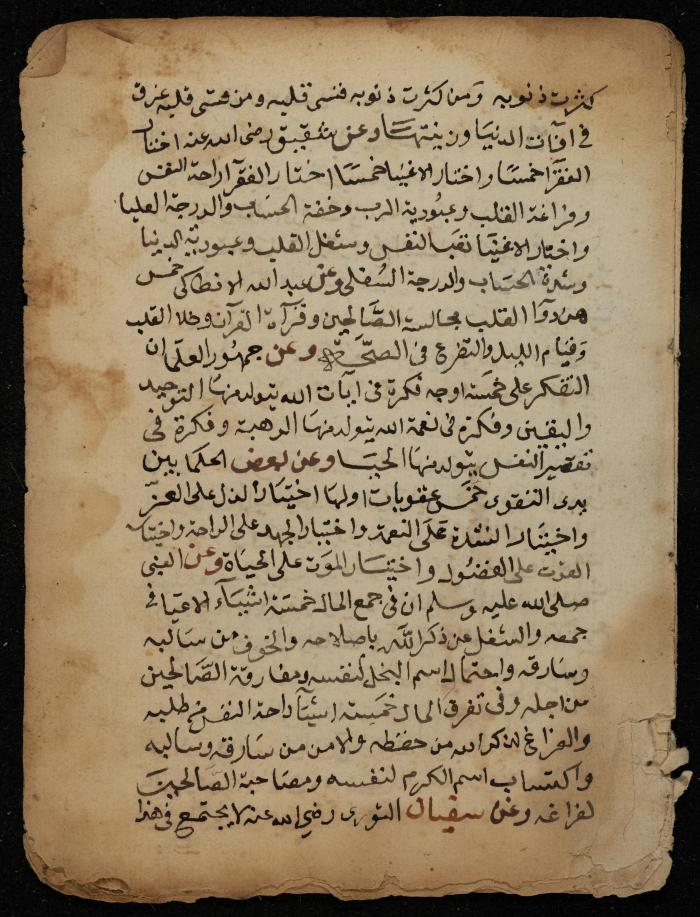 كثرت ذنوبه ومن كثرت ذنوبه قسى قلبه ومن قسى قلبه غرق
فى افآت الدنيا وزينتها وعن شقيق رضى الله عنه اختار
الفقرآ خمسا واختار الاغنيا خمسا اختار الفقرآ راحة النفس
وفراغة القلب وعبودية الرب وخفة الحساب والدرجة العليا
واختار الاغنيا تعب النفس وشغل القلب وعبودية الدنيا
وشدة الحساب والدرجة السفلى وعن عبد الله الانطاكى خمس
هن دوآ القلب مجالسة الصالحين وقرآءة القرآن وخلا القلب
وقيام الليل والتضرع فى الصبح وعن جمهور العلما ان
التفكر على خمسة اوجه فكرة فى ايات الله يتولد منها التوحيد
واليقين وفكرة فى نعمة الله يتولد منها الرهبة وفكرة فى
تقصير النفس يتولد منها الحيا وعن بعض الحكما بين
يدى التقوى خمس عقوبات اولها اختيار الذل على العز
واختيار الشدة على النعمة واختيار الجهد على الراحة واختيار
القوت على الفضول واختيار الموت على الحياة وعن النبى
صلى الله عليه وسلم ان فى جمع المال خمسة اشيآء الاعيا فى
جمعه والشغل عن ذكر الله باصلاحه والخوف من سالبه
وسارقه واحتمال اسم البخل لنفسه ومفارقة الصالحين
من اجله وفى تفرق المال خمسة اشيآ راحة النفس من طلبه
والفراغ لذكر الله من حفظه والامن من سارقه وسالبه
واكتساب اسم الكرم لنفسه ومصاحبة الصالحين
لفراغه وعن سفيان الثورى رضي الله عنه لا يجتمع فى هذا